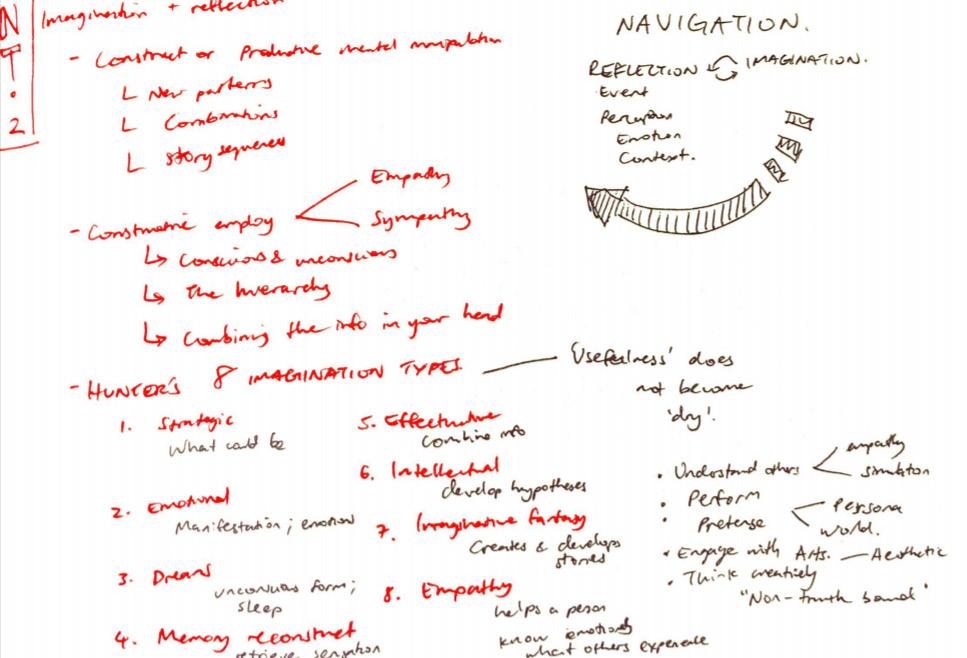 N
T
.
2
Imagination + reflection
- Construct or Productive mental manipulation
L New patterns
L Combinations
L Story sequences
- Constructive employ
Empathy
Sympathy
↳ Conscious & unconscious
↳ The hierarchy
↳ Combining the info in your head
- HUNTER'S 8 IMAGINATION TYPES
1. Strategic
What could be
2. Emotional
Manifestation; emotions
3. Dreams
unconscious form;
sleep
4. Memory reconstruct
retrieve sensation
5. Effectuative
Combine info
6. Intellectual
develop hypotheses
7. Imaginative fantasy
Creates & develops
stories
8. Empathy
helps a person
know emotionally
what others experience
NAVIGATION.
REFLECTION IMAGINATION.
Event
Perception
Emotion
Context.
'Usefulness' does
not become
'dry'.
• Understand others
empathy
simulation
• Perform
• Pretense
Persona
world.
• Engage with Arts. — Aesthetic
• Think creatively
"Non-truth bound"